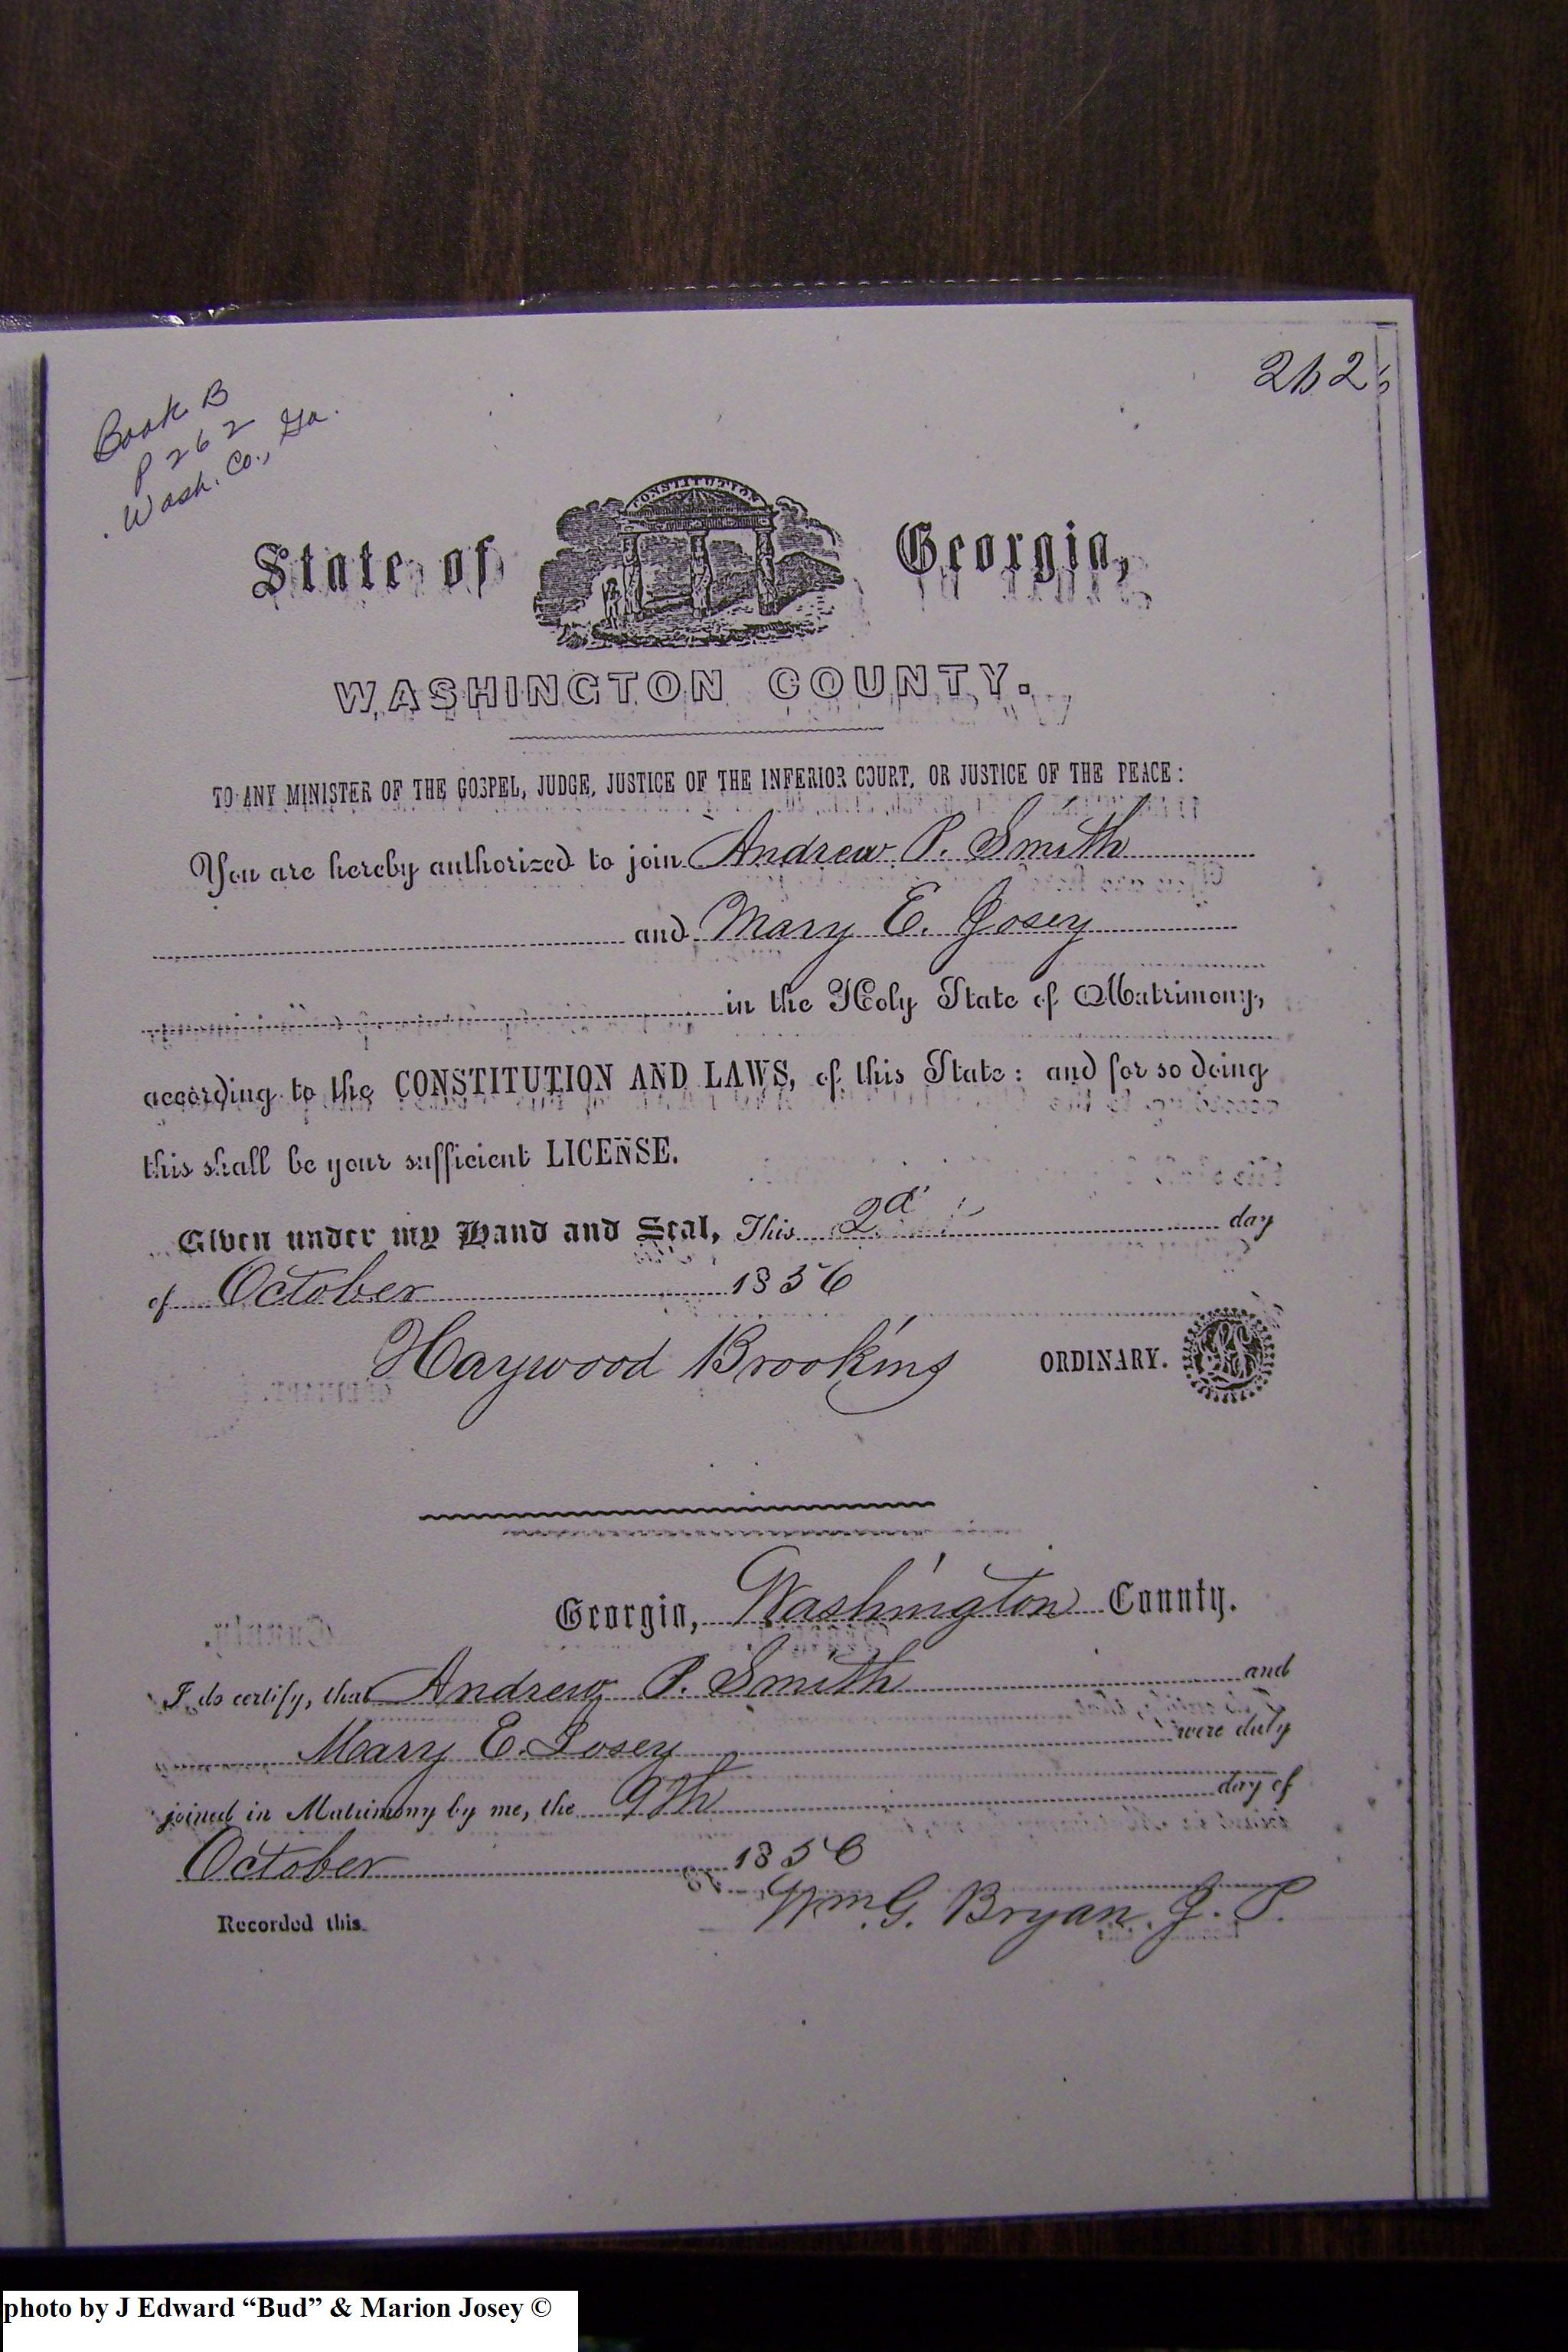 262
Book B
P 262
Wash. Co., Ga.
CONSTITUTION
State of Georgia,
WASHINGTON COUNTY.
TO ANY MINISTER OF THE GOSPEL, JUDGE, JUSTICE OF THE INFERIOR COURT, OR JUSTICE OF THE PEACE:
You are hereby authorized to join Andrew P. Smith
and Mary E. Josey
in the Holy State of Matrimony,
according to the CONSTITUTION AND LAWS, of this State: and for so doing
this shall be your sufficient LICENSE.
Given under my Hand and Seal, This 2d day
of October 1856
Haywood Brookins ORDINARY.
Georgia, Washington County.
I do certify, that Andrew P. Smith and
Mary E. Josey were duly
joined in Matrimony by me, the 9th day of
October 1856
Wm. G. Bryan. J. P.
Recorded this
photo by J Edward “Bud” & Marion Josey ©